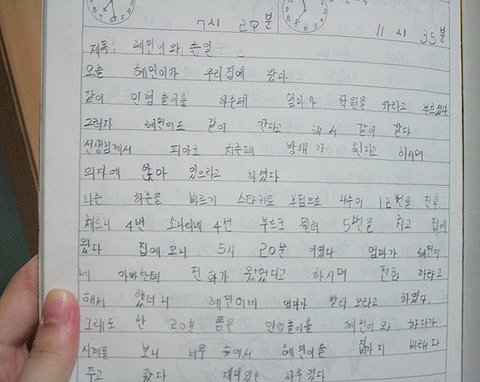 7시 20분 11시 35분
제목: 혜민이와 손일
오늘 혜민이가 우리집에 왔다
같이 인형 놀이를 하는데 엄마가 학원을 가라고 부르셨다
그러자 혜민이도 같이 간다고 해서 같이 갔다
선생님께서 피아노 치는데 방해가 된다고 하시며
의자에 앉아 있으라고 하였다
나는 하논을 바르기 스타카토 부점으로 4주에 12번을 친후
체르니 4번 소나티네 4번 부르크 뮐러 5번을 치고 집에
왔다 집에 오니 5시 20분 이였다 엄마가 혜민이
네 아빠한테 전화가 왔었다고 하시며 전화 하라고
해서 했더니 혜민이네 엄마가 빨리 오라고 하였다
그래도 한 20분 쯤은 인형놀이를 혜민이와 하다가
시계를 보니 너무 늦어서 혜민이를 집까지 바래다
주고 왔다 재미있는 하루였다